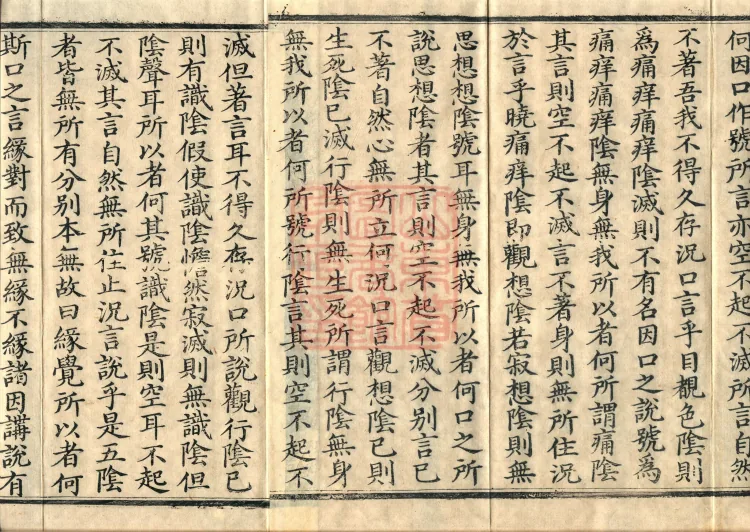 何因口作號所言亦空不起不滅所言自然
不著吾我不得久存況口言乎目覩色陰則
為痛痒痛痒陰滅則不有名因口之說號為
痛痒痛痒陰無身無我所以者何所謂痛陰
其言則空不起不滅言不著身則無所住況
於言乎曉痛痒陰即觀想陰若寂想陰則無
思想想陰號耳無身無我所以者何口之所
說思想陰者其言則空不起不滅分別言已
不著自然心無所立何況口言觀想陰已則
生死陰已滅行陰則無生死所謂行陰無身
無我所以者何所號行陰言其則空不起不
滅但著言耳不得久存況口所說觀行陰已
則有識陰假使識陰憺然寂滅則無識陰但
陰聲耳所以者何其號識陰是則空耳不起
不滅其言自然無所住止況言說乎是五陰
者皆無所有分別本無故曰緣覺所以者何
斯口之言緣對而致無緣不緣諸因講說有